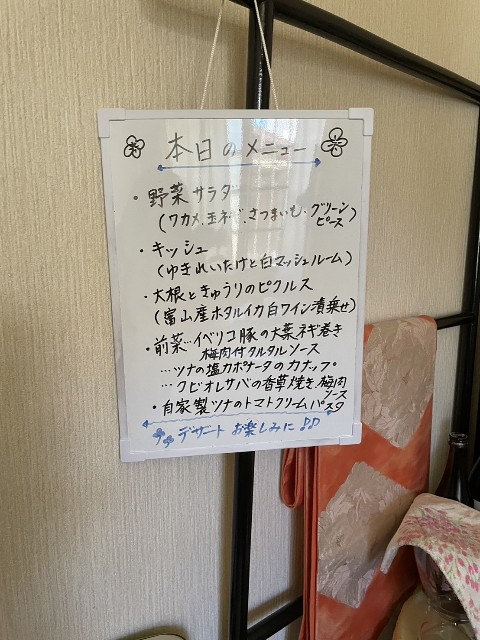 本日のメニュー
・野菜サラダ
(ワカメ、玉ネギ、さつまいも・グリーン
ピース)
・キッシュ
(ゆきれいたけと白マッシュルーム)
・大根ときゅうりのピクルス
(富山産ホタルイカ白ワイン漬乗せ)
・前菜…イベリコ豚の大葉ネギ巻き
梅肉付タルタルソース
…ツナの塩カポナータのカナッペ
…クビオレサバの香草焼き、梅肉
ソース
・自家製ツナのトマトクリームパスタ
デザートお楽しみに♪♪